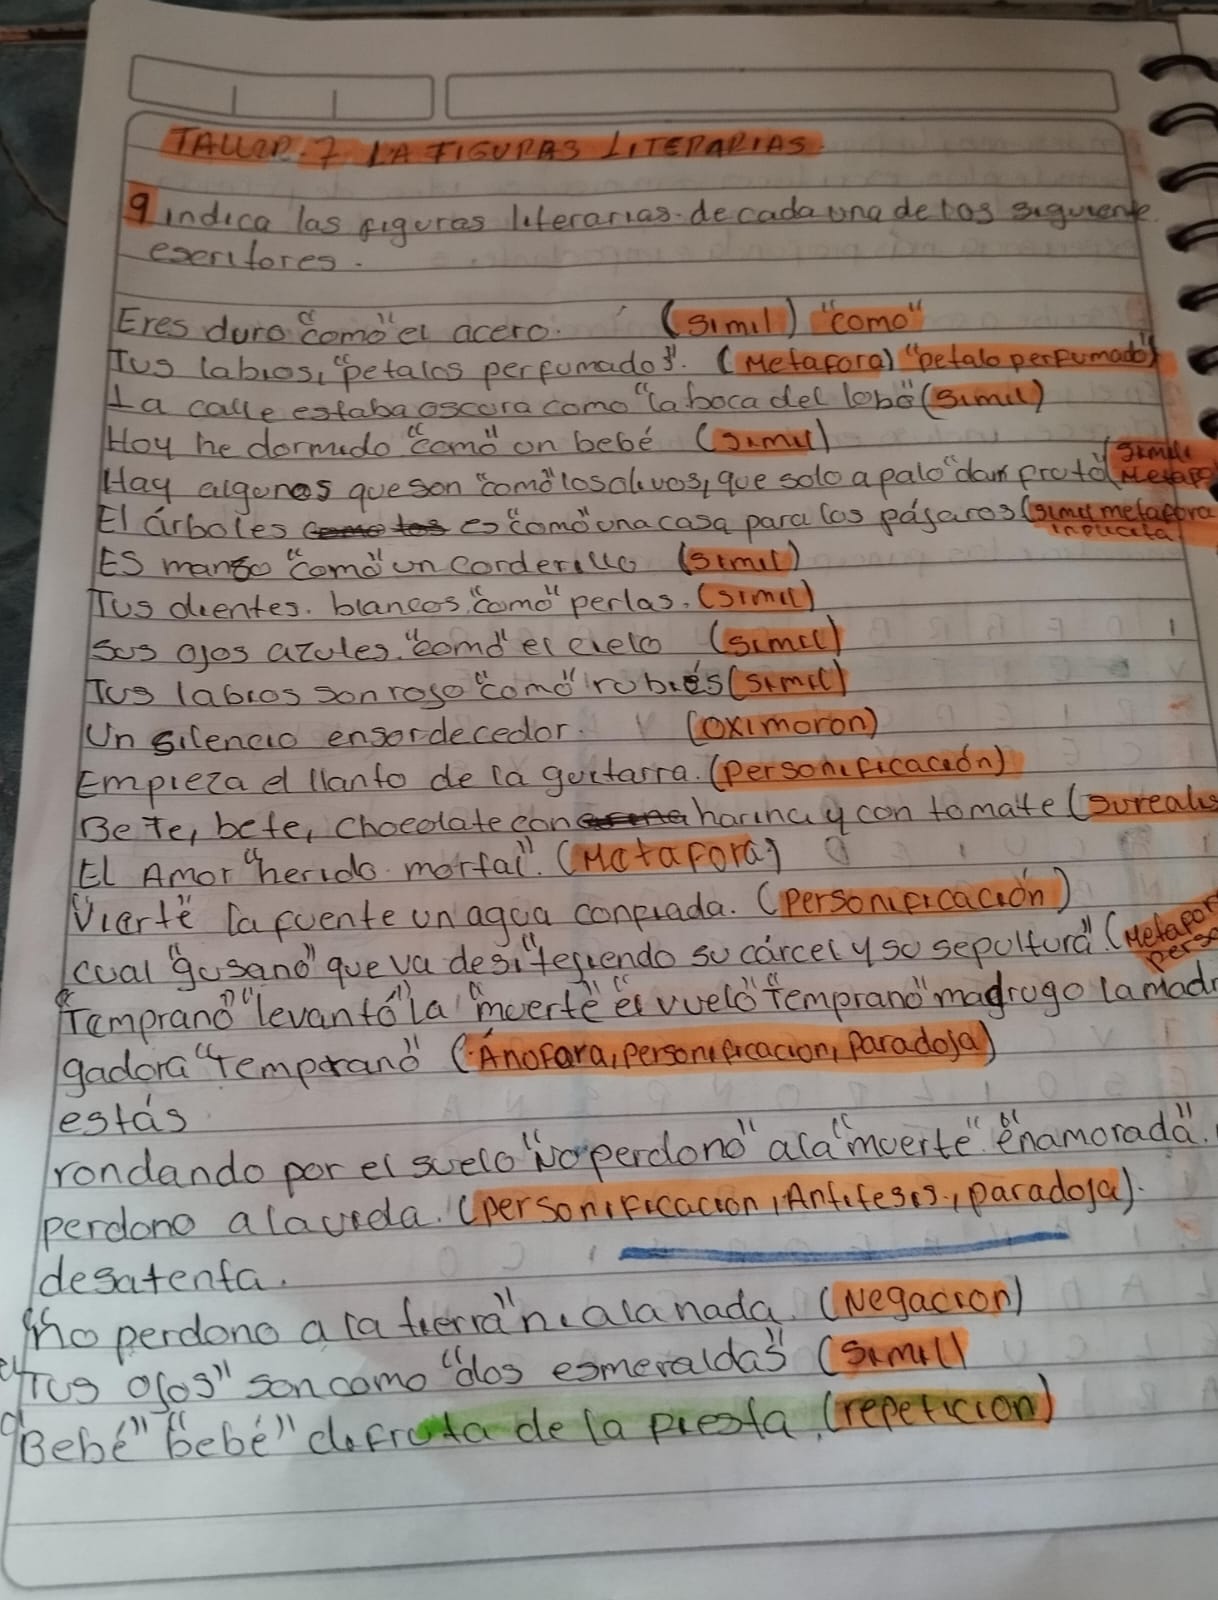 TALLER. 7 LA FIGURAS LITERARIAS.
9 indica las figuras literarias. de cada una de los siguiente
escritores.
Eres duro "como" el acero. (simil) "como"
Tus labios, "petalos perfumados". (Metafora) "petalo perfumado"
La calle estaba oscura como "la boca del lobo" (simil)
Hoy he dormido "como" un bebé (simil)
Hay algunos que son "como" los olivos, que solo a palo "dan fruto" (simil Metafo
El árboles es "como" una casa para los pájaros (simil metafora implicita)
ES manso "como" un corderillo (simil)
Tus dientes. blancos, "como" perlas. (simil)
Sus ojos azules. "como" el cielo (simil)
Tus labios son rojo "como" rubiés (simil)
Un silencio ensordecedor. (oximoron)
Empieza el llanto de la guitarra. (personificación)
Bete, bete, chocolate con harina y con tomate (surealis
El Amor "herido. mortal". (Metafora)
Vierte la fuente un agua confiada. (personificación)
cual "gusano" que va de si "tejiendo su cárcel y so sepultura" (Metafor perso
"Temprano" "levantó" la "muerte" "el vuelo" "Temprano" madrugo la madr
gadora "Temprano" (Ánofara, personificacion, paradoja)
estás
rondando por el suelo "No perdono" a la "muerte" "enamorada".
perdono a la vida. (personificacion, Antitesis., paradoja).
desatenta.
"no perdono a la tierra" ni a la nada. (Negacion)
"Tus ojos" son como "dos esmeraldas" (simil)
"Bebé" "bebé" disfruta de la fiesta, (repeticion)